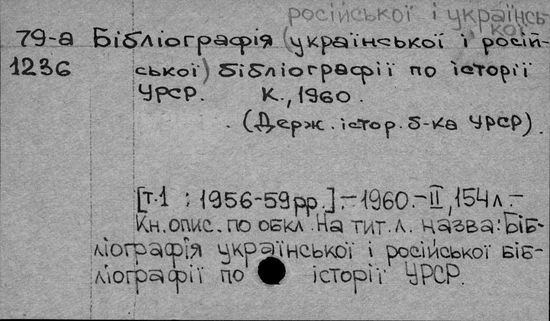 російської і українсь
кої
79-а Бібліографія (української і росій-
1236 ської) бібліографії по історії
УРСР. К., 1960.
(Держ. істор. б-ка УРСР).
[т.1 : 1956-59рр.].-1960.-II, 154л.-
Кн. опис. по обкл. На тит. л. назва: Біб-
ліографія української і російської біб-
ліографії по історії УРСР.